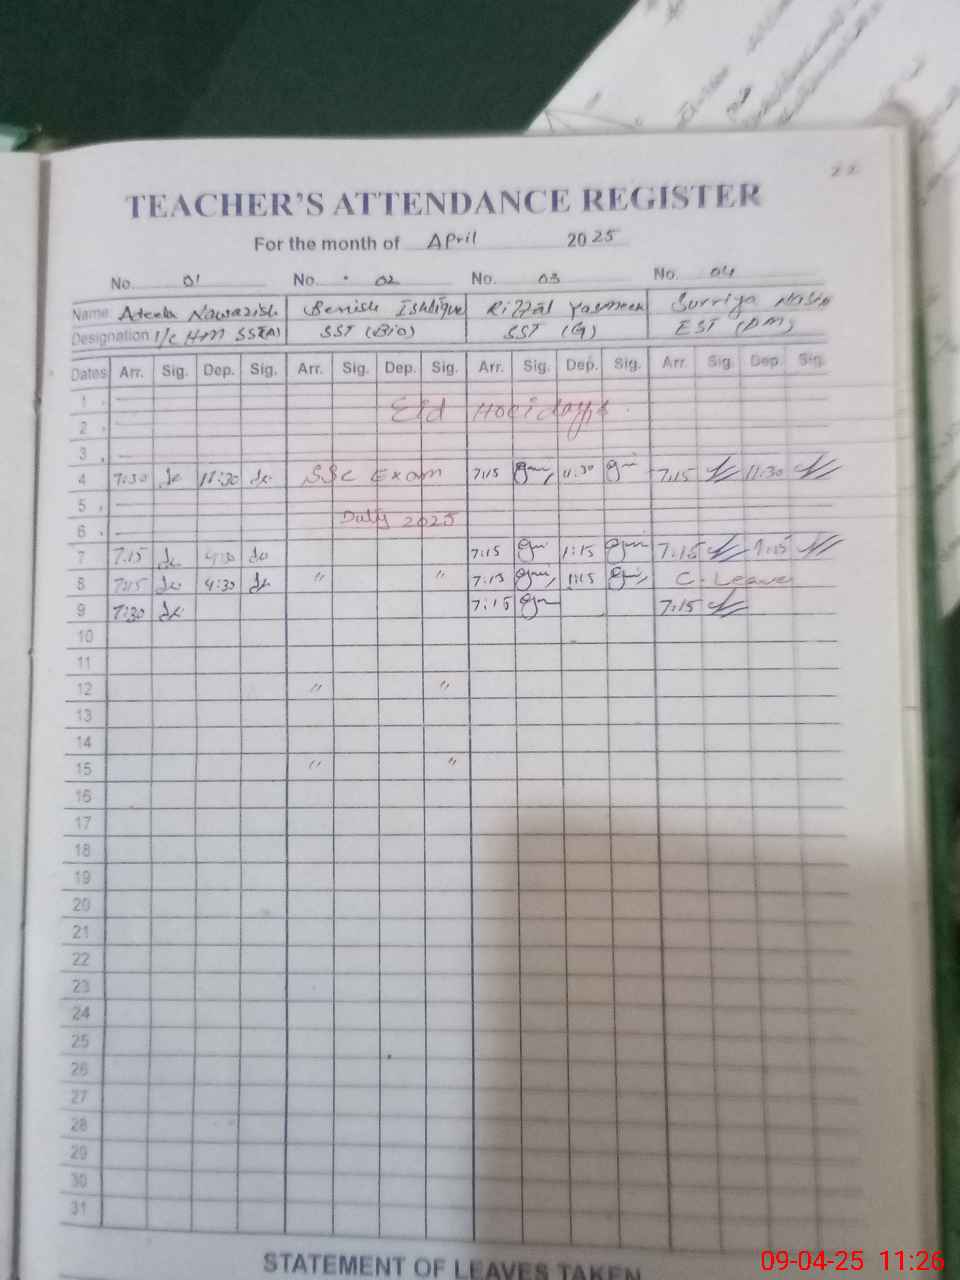 22
TEACHER'S ATTENDANCE REGISTER
For the month of April 2025
No. 01 No. 02 No. 03 No. 04
Name Ateeka Nawazish Benish Ishtique Yasmeen Surriya
Designation I/c HM SST(A) SST (Bio) SST (G) EST (DM)
Dates Arr. Sig. Dep. Sig. Arr. Sig. Dep. Sig. Arr. Sig. Dep. Sig. Arr. Sig. Dep. Sig.
1
Eid Holidays
2
3
4 7:30 11:30 SSC Exam 7:15 11:30 7:15 11:30
5
Duty 2025
6
7 7:15 4:30 7:15 1:15 7:15
8 7:15 4:30 " " 7:15 1:15 C. Leave
9 7:30 7:15 7:15
10
11
12 " "
13
14
15 " "
16
17
18
19
20
21
22
23
24
25
26
27
28
29
30
31
STATEMENT OF LEAVES TAKEN
09-04-25 11:26